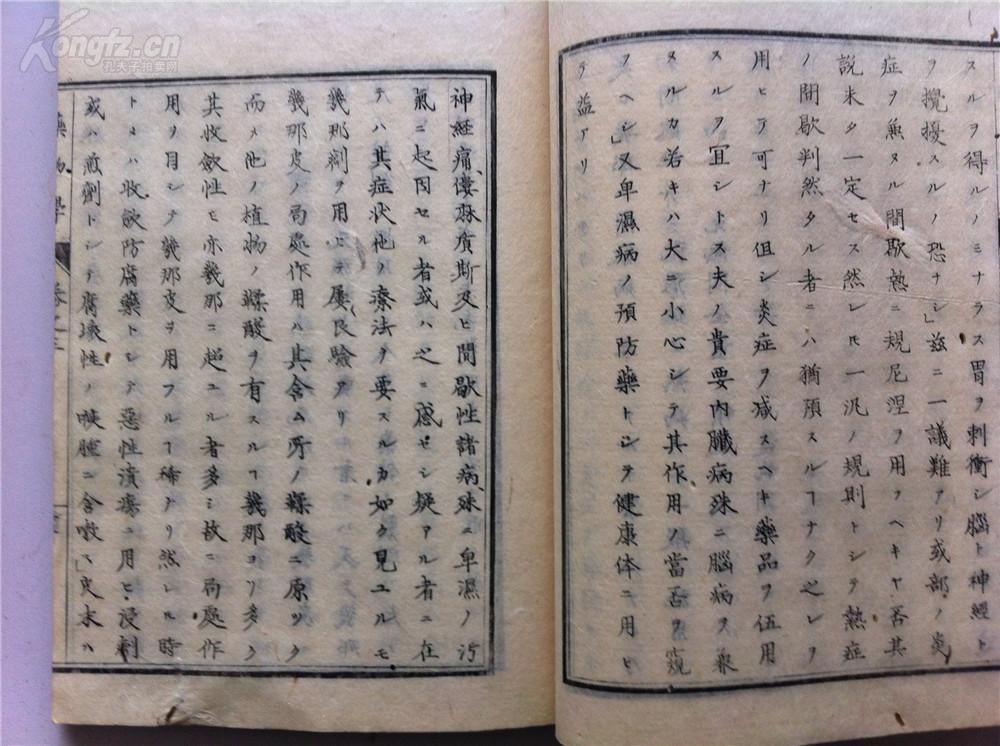 スルヲ得ルノミナラス胃ヲ刺衝シ腦ト神経ト
ヲ攪擾スルノ恐ナシ」玆ニ一議難アリ或部ノ炎
症ヲ兼タル間歇熱ニ規尼涅ヲ用フヘキヤ否其
説未タ一定セス然レ𪜈一汎ノ規則トシテ熱症
ノ間歇判然タル者ニハ猶預スルヿナク之レヲ
用ヒテ可ナリ但シ炎症ヲ减スヘキ藥品ヲ伍用
スルヲ冝シトス夫ノ貴要内臟病殊ニ腦病ヲ兼
スルカ若キハ大ニ小心シテ其作用ノ當否ヲ窺
フヘシ」又卑濕病ノ預防藥トシテ健康体ニ用ヒ
テ益アリ
神経痛僂麻質斯及ヒ間歇性諸病殊ニ卑濕ノ汚
氣ニ起因セル者或ハ之ニ感セシ疑アル者ニ在
テハ其症状他ノ療法ヲ要スルカ如ク見ユルモ
幾那劑ヲ用ヒテ屢良驗アリ
幾那皮ノ局處作用ハ其含ム所ノ鞣酸ニ原ツク
而メ他ノ植物ノ鞣酸ヲ有スルヿ幾那ヨリ多ク
其收歛性モ亦幾那ニ超ユル者多シ故ニ局處作
用ヲ目シテ幾那皮ヲ用フルヿ稀ナリ然レ𪜈時
トメハ收歛防腐藥トシテ惡性潰瘍ニ用ヒ浸劑
或ハ煎劑トシテ腐壊性ノ咽腫ニ含嗽ス」末ハ
藥物學 卷之三
Kongfz.cn
孔夫子拍卖网